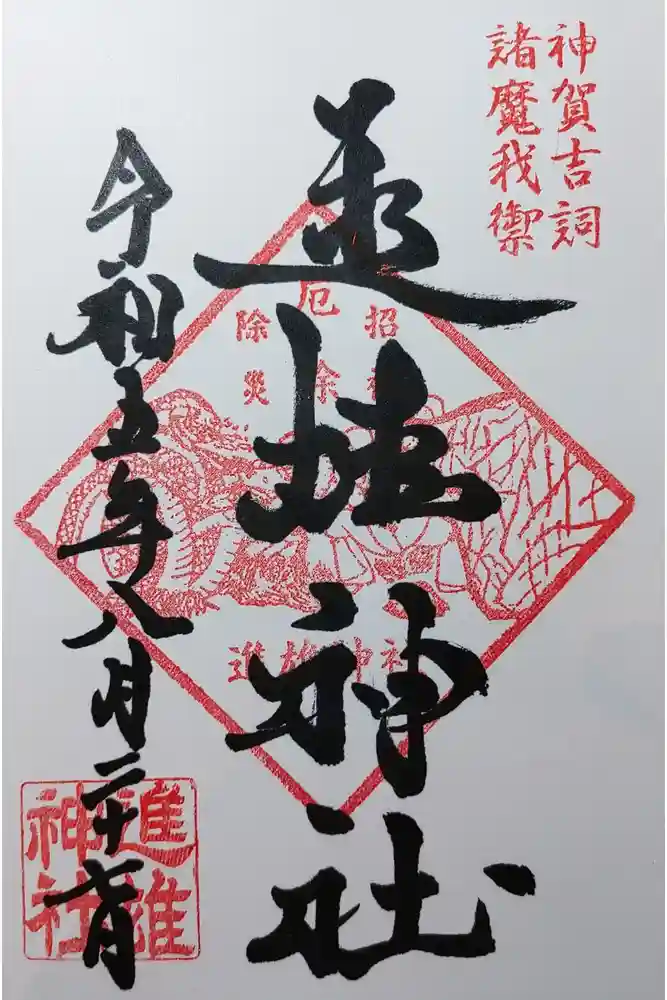 神賀吉詞
諸魔我禦
進雄神社
招福
厄除
除災
進雄神社
令和五年八月二十六日
進雄
神社